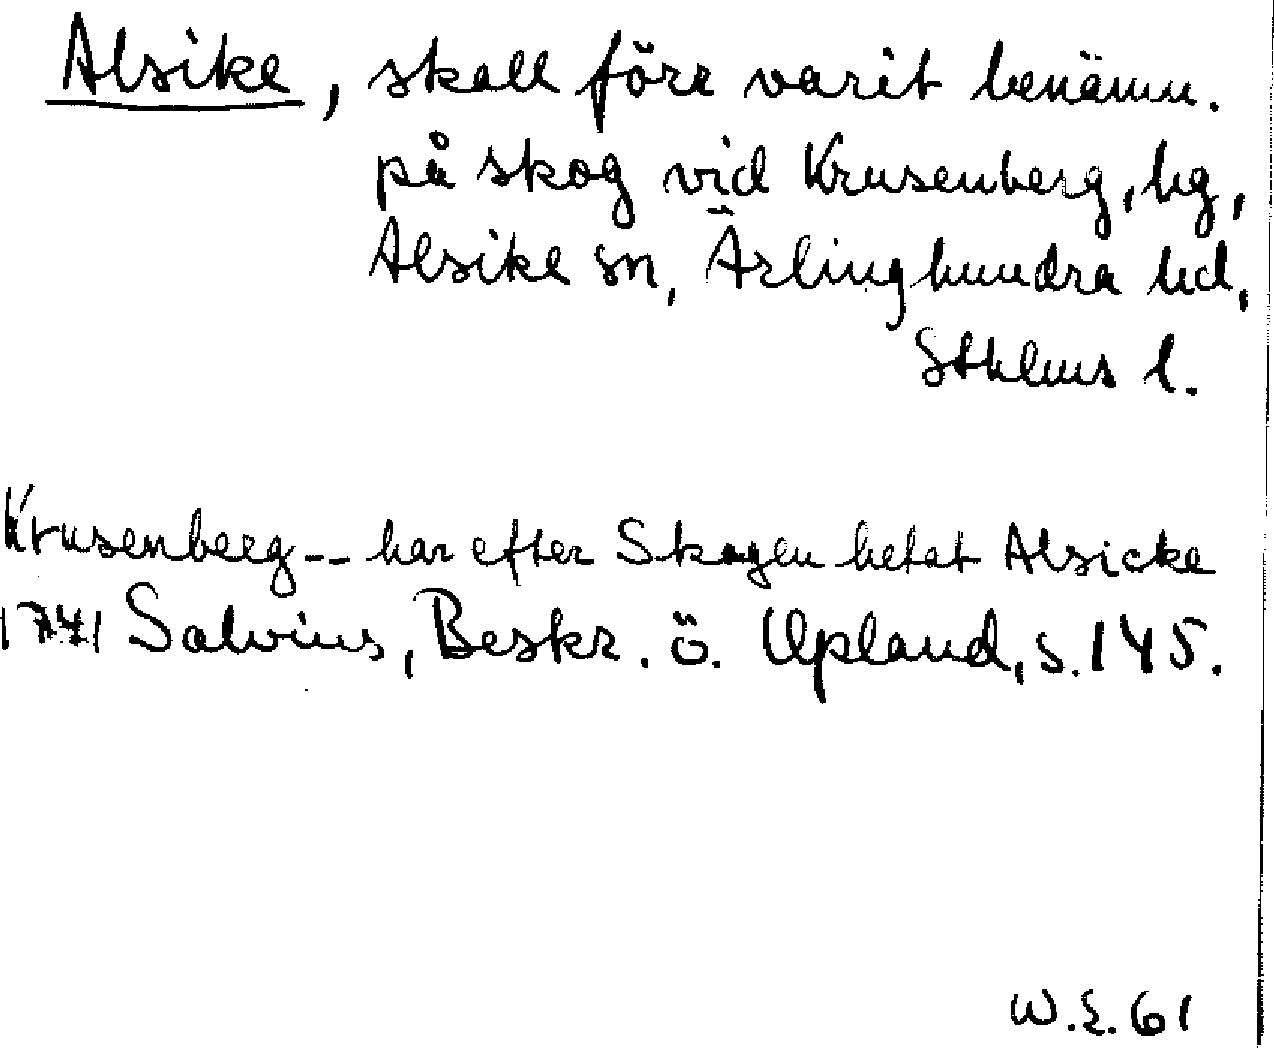 Alsike, skall förr varit benämn.
på skog vid Krusenberg, hg,
Alsike sn, Ärlinghundra hd,
Sthlms l.
Krusenberg -- har efter Skogen hetat Alsicke
1741 Salvius, Beskr. ö. Upland, s. 145.
W.E. 61